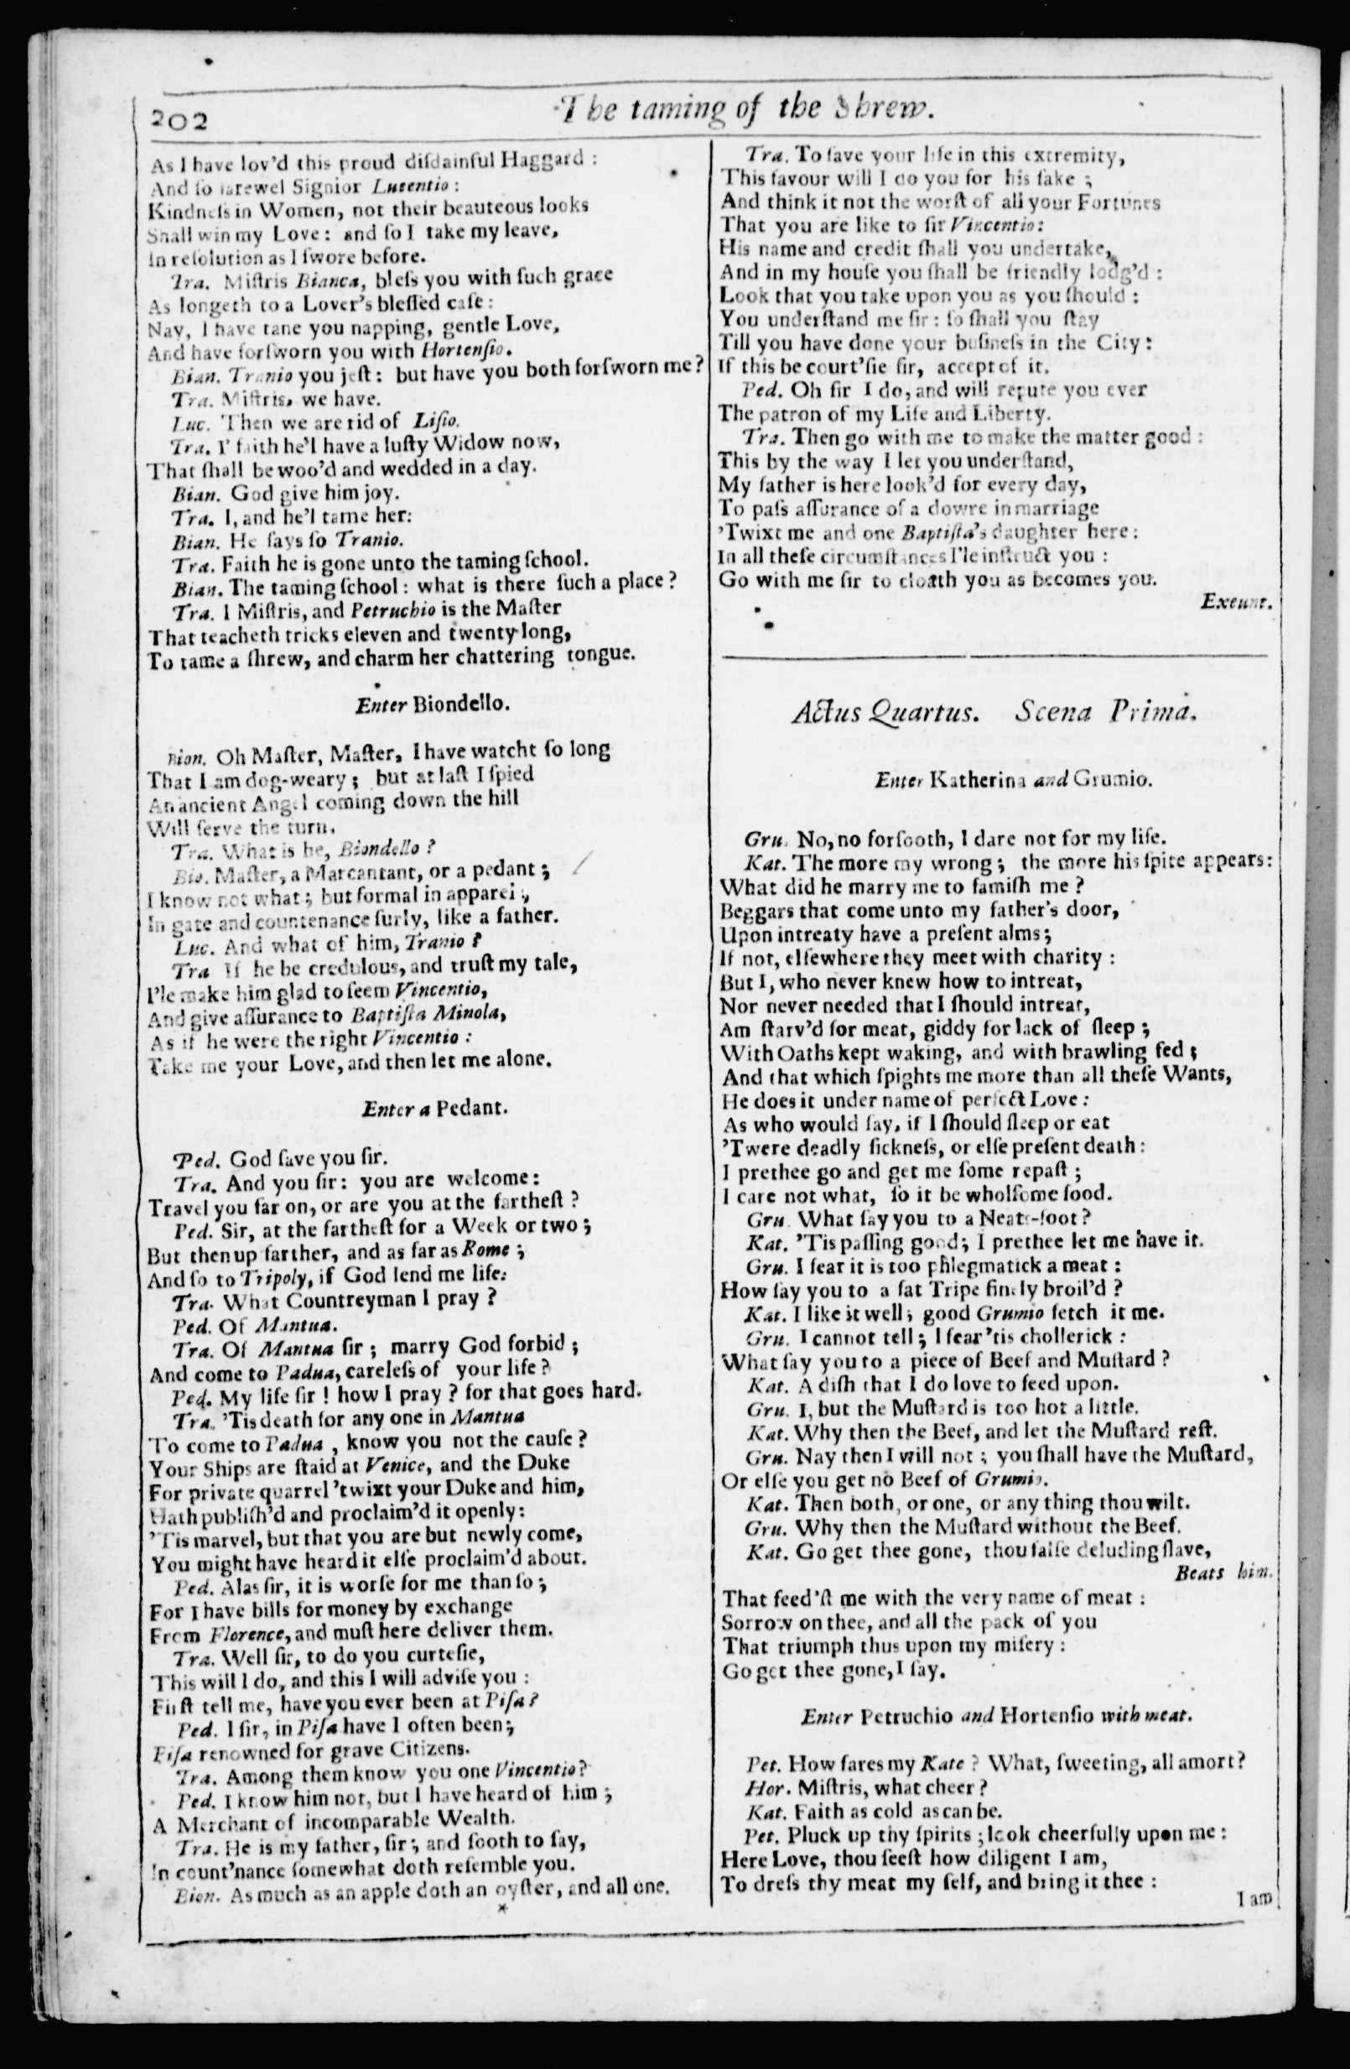 202
The taming of the Shrew.
As I have lov'd this proud disdainful Haggard :
And so farewel Signior Lucentio :
Kindneſs in Women, not their beauteous looks
Shall win my Love : and ſo I take my leave,
In reſolution as I ſwore before.
Tra. Miſtris Bianca, bleſs you with ſuch grace
As longeth to a Lover's bleſſed caſe :
Nay, I have tane you napping, gentle Love,
And have forſworn you with Hortenſio.
Bian. Tranio you jeſt : but have you both forſworn me ?
Tra. Miſtris, we have.
Luc. Then we are rid of Liſio.
Tra. I' faith he'l have a luſty Widow now,
That ſhall be woo'd and wedded in a day.
Bian. God give him joy.
Tra. I, and he'l tame her:
Bian. He ſays ſo Tranio.
Tra. Faith he is gone unto the taming ſchool.
Bian. The taming ſchool : what is there ſuch a place ?
Tra. I Miſtris, and Petruchio is the Maſter
That teacheth tricks eleven and twenty long,
To tame a ſhrew, and charm her chattering tongue.
Enter Biondello.
Bion. Oh Maſter, Maſter, I have watcht ſo long
That I am dog-weary ; but at laſt I ſpied
An ancient Angel coming down the hill
Will ſerve the turn.
Tra. What is he, Biondello ?
Bio. Maſter, a Marcantant, or a pedant ;
I know not what ; but formal in apparel ,
In gate and countenance ſurly, like a father.
Luc. And what of him, Tranio ?
Tra If he be credulous, and truſt my tale,
I'le make him glad to ſeem Vincentio,
And give aſſurance to Baptiſta Minola,
As if he were the right Vincentio :
Take me your Love, and then let me alone.
Enter a Pedant.
Ped. God ſave you ſir.
Tra. And you ſir : you are welcome :
Travel you far on, or are you at the fartheſt ?
Ped. Sir, at the fartheſt for a Week or two ;
But then up farther, and as far as Rome ;
And ſo to Tripoly, if God lend me life:
Tra. What Countreyman I pray ?
Ped. Of Mantua.
Tra. Of Mantua ſir ; marry God forbid ;
And come to Padua, careleſs of your life ?
Ped. My life ſir ! how I pray ? for that goes hard.
Tra. 'Tis death for any one in Mantua
To come to Padua , know you not the cauſe ?
Your Ships are ſtaid at Venice, and the Duke
For private quarrel 'twixt your Duke and him,
Hath publiſh'd and proclaim'd it openly:
'Tis marvel, but that you are but newly come,
You might have heard it elſe proclaim'd about.
Ped. Alas ſir, it is worſe for me than ſo ;
For I have bills for money by exchange
From Florence, and muſt here deliver them.
Tra. Well ſir, to do you curteſie,
This will I do, and this I will adviſe you :
Firſt tell me, have you ever been at Piſa ?
Ped. I ſir, in Piſa have I often been ;
Piſa renowned for grave Citizens.
Tra. Among them know you one Vincentio ?
Ped. I know him not, but I have heard of him ;
A Merchant of incomparable Wealth.
Tra. He is my father, ſir ; and ſooth to ſay,
In count'nance ſomewhat doth reſemble you.
Bion. As much as an apple doth an oyſter, and all one.
*
Tra. To ſave your life in this extremity,
This favour will I do you for his ſake ;
And think it not the worſt of all your Fortunes
That you are like to ſir Vincentio:
His name and credit ſhall you undertake,
And in my houſe you ſhall be friendly lodg'd :
Look that you take upon you as you ſhould :
You underſtand me ſir : ſo ſhall you ſtay
Till you have done your buſineſs in the City :
If this be court'ſie ſir, accept of it.
Ped. Oh ſir I do, and will repute you ever
The patron of my Life and Liberty.
Tra. Then go with me to make the matter good :
This by the way I let you underſtand,
My father is here look'd for every day,
To paſs aſſurance of a dowre in marriage
'Twixt me and one Baptiſta's daughter here :
In all theſe circumſtances I'le inſtruct you :
Go with me ſir to cloath you as becomes you.
Exeunt.
Actus Quartus. Scena Prima.
Enter Katherina and Grumio.
Gru. No, no forſooth, I dare not for my life.
Kat. The more my wrong ; the more his ſpite appears :
What did he marry me to famiſh me ?
Beggars that come unto my father's door,
Upon intreaty have a preſent alms ;
If not, elſewhere they meet with charity :
But I, who never knew how to intreat,
Nor never needed that I ſhould intreat,
Am ſtarv'd for meat, giddy for lack of ſleep ;
With Oaths kept waking, and with brawling fed ;
And that which ſpights me more than all theſe Wants,
He does it under name of perfect Love :
As who would ſay, if I ſhould ſleep or eat
'Twere deadly ſickneſs, or elſe preſent death :
I prethee go and get me ſome repaſt ;
I care not what, ſo it be wholſome food.
Gru. What ſay you to a Neats-foot ?
Kat. 'Tis paſſing good ; I prethee let me have it.
Gru. I fear it is too phlegmatick a meat :
How ſay you to a fat Tripe finely broil'd ?
Kat. I like it well ; good Grumio fetch it me.
Gru. I cannot tell ; I fear 'tis chollerick :
What ſay you to a piece of Beef and Muſtard ?
Kat. A diſh that I do love to feed upon.
Gru. I, but the Muſtard is too hot a little.
Kat. Why then the Beef, and let the Muſtard reſt.
Gru. Nay then I will not ; you ſhall have the Muſtard,
Or elſe you get no Beef of Grumio.
Kat. Then both, or one, or any thing thou wilt.
Gru. Why then the Muſtard without the Beef.
Kat. Go get thee gone, thou falſe deluding ſlave,
Beats him.
That feed'ſt me with the very name of meat :
Sorrow on thee, and all the pack of you
That triumph thus upon my miſery :
Go get thee gone, I ſay.
Enter Petruchio and Hortenſio with meat.
Pet. How fares my Kate ? What, ſweeting, all amort ?
Hor. Miſtris, what cheer ?
Kat. Faith as cold as can be.
Pet. Pluck up thy ſpirits ; look cheerfully upon me :
Here Love, thou ſeeſt how diligent I am,
To dreſs thy meat my ſelf, and bring it thee :
I am